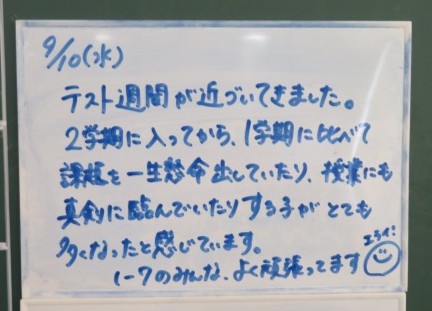 9/10(水)
テスト週間が近づいてきました。
2学期に入ってから、1学期に比べて
課題を一生懸命出していたり、授業にも
真剣に臨んでいたりする子がとても
多くなったと感じています。
1-7のみんな、よく頑張ってます
エライ!